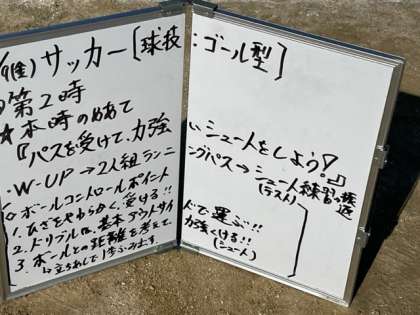 9(金)サッカー[球技:ゴール型]
第2時
★本時のめあて
『パスを受けて、力強いシュートをしよう!』
・W-UP→2人組ランニングパス→シュート練習
(ラスト)
◇ボールコントロールポイント
1.ひざをやわらかく、受ける!!
2.ドリブルは、基本アウトサイドで運ぶ!!
3.ボールとの距離を考えて力強くける!!
(シュート)
↳立ち足して1歩ふみ出す